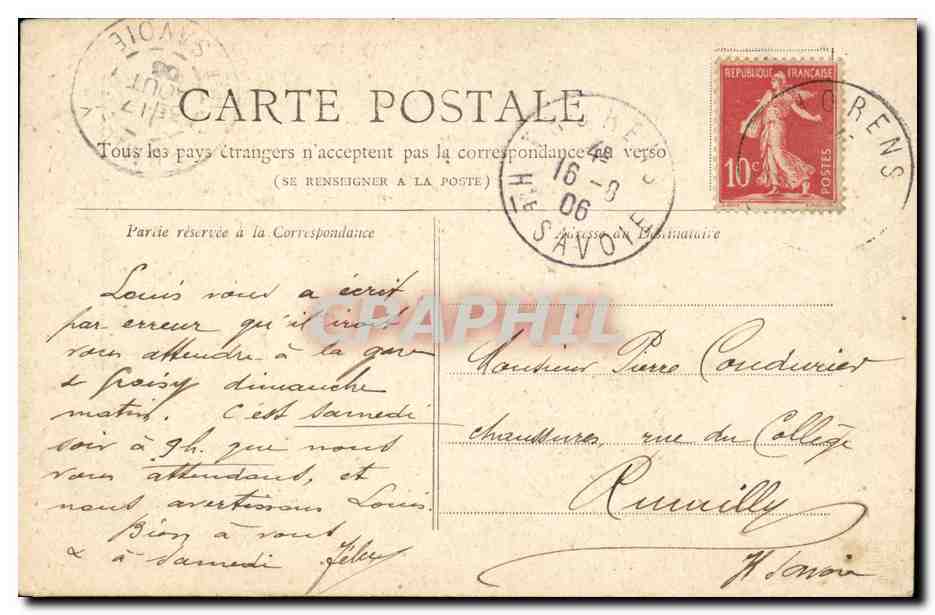 CARTE POSTALE
Tous les pays étrangers n'acceptent pas la correspondance au verso
(SE RENSEIGNER A LA POSTE)
Partie réservée à la Correspondance
Adresse du Destinataire
Louis vous a écrit
par erreur qu'il irait
vous attendre à la gare
de Groisy dimanche
matin. C'est samedi
soir à 9h. que nous
vous attendons, et
nous avertissons Louis.
Bien à vous
& à samedi
Monsieur Pierre Condurier
chaussures, rue du Collège
Rumilly
Hte Savoie
REPUBLIQUE FRANÇAISE
10c
POSTES
THORENS
4E
16 -8
06
HTE SAVOIE
ORENS
SAVOIE
17
AOUT
06
CPAPHIL